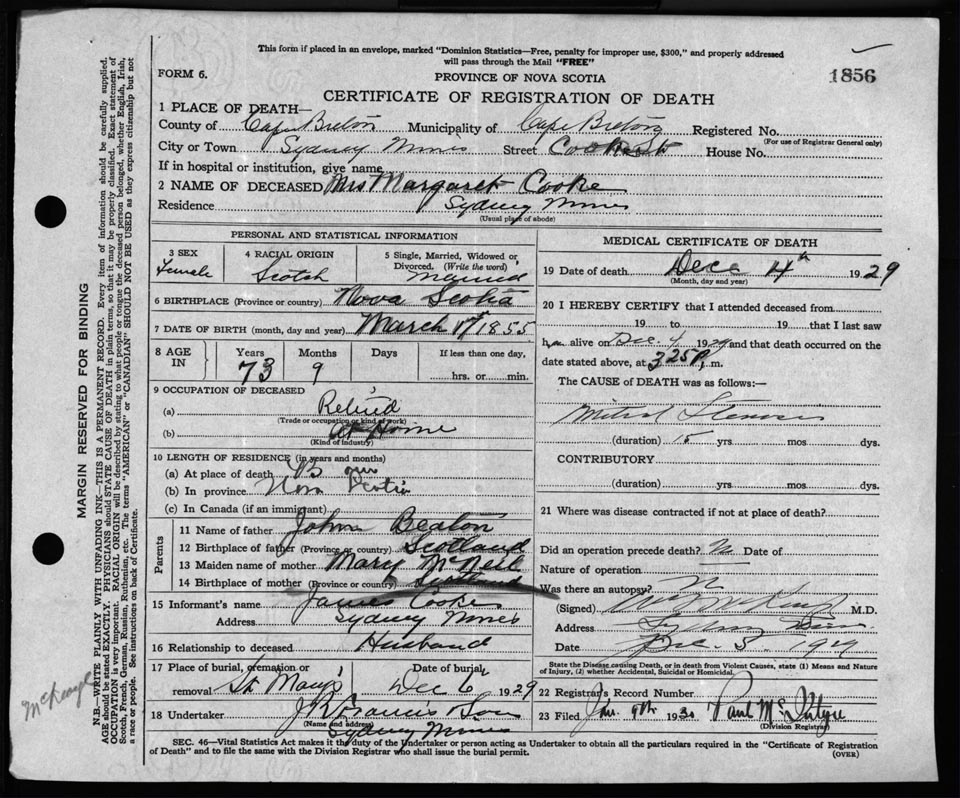 This form if placed in an envelope, marked "Dominion Statistics—Free, penalty for improper use, $300," and properly addressed
will pass through the Mail "FREE"
1856
FORM 6.
PROVINCE OF NOVA SCOTIA
CERTIFICATE OF REGISTRATION OF DEATH
1 PLACE OF DEATH—
County of Cape Breton Municipality of Cape Breton Registered No.
(For use of Registrar General only)
City or Town Sydney Mines Street Cooke St House No.
If in hospital or institution, give name
2 NAME OF DECEASED Mrs Margaret Cooke
Residence Sydney Mines
(Usual place of abode)
PERSONAL AND STATISTICAL INFORMATION
3 SEX Female
4 RACIAL ORIGIN Scotch
5 Single, Married, Widowed or Divorced. (Write the word) Married
6 BIRTHPLACE (Province or country) Nova Scotia
7 DATE OF BIRTH (month, day and year) March 1855
8 AGE IN Years Months Days If less than one day,
73 9 hrs. or min.
9 OCCUPATION OF DECEASED
(a) Retired
(Trade or occupation or kind of work)
(b) At Home
(Kind of industry)
10 LENGTH OF RESIDENCE (in years and months)
(a) At place of death
(b) In province Nova Scotia
(c) In Canada (if an immigrant)
Parents
11 Name of father John Beaton
12 Birthplace of father (Province or country) Scotland
13 Maiden name of mother Mary McNeil
14 Birthplace of mother (Province or country) Scotland
15 Informant's name James Cooke
Address Sydney Mines
16 Relationship to deceased Husband
17 Place of burial, cremation or removal St Mary's
Date of burial Dec 6 1929
18 Undertaker
(Name and address)
Sydney Mines
MEDICAL CERTIFICATE OF DEATH
19 Date of death Dec 4th 1929
(Month, day and year)
20 I HEREBY CERTIFY that I attended deceased from
19 to 19 that I last saw
h alive Dec. 4 1929 and that death occurred on the
date stated above, at 3 25 P. m.
The CAUSE of DEATH was as follows:—
Mitral Stenosis
(duration) 15 yrs. mos. dys.
CONTRIBUTORY
(duration) yrs. mos. dys.
21 Where was disease contracted if not at place of death?
Did an operation precede death? No Date of
Nature of operation
Was there an autopsy? No
(Signed) M.D.
Address Sydney Mines
Date Dec. 5 1929
State the Disease causing Death, or in death from Violent Causes, state (1) Means and Nature
of Injury, (2) whether Accidental, Suicidal or Homicidal.
22 Registrar's Record Number
23 Filed Jan. 9th 1930 Paul McIntyre
(Division Registrar)
SEC. 46—Vital Statistics Act makes it the duty of the Undertaker or person acting as Undertaker to obtain all the particulars required in the "Certificate of Registration
of Death" and to file the same with the Division Registrar who shall issue the burial permit.
(OVER)
MARGIN RESERVED FOR BINDING
N.B.—WRITE PLAINLY WITH UNFADING INK—THIS IS A PERMANENT RECORD. Every item of information should be carefully supplied.
AGE should be stated EXACTLY. PHYSICIANS should STATE CAUSE OF DEATH in plain terms, so that it may be properly classified. Exact statement of
OCCUPATION is very important. RACIAL ORIGIN will be described by stating to what people or tongue the deceased person belonged, whether English, Irish,
Scotch, French, German, Russian, Ruthenian, etc. The terms "AMERICAN" or "CANADIAN" SHOULD NOT BE USED as they express citizenship but not
a race or people. See instructions on back of Certificate.